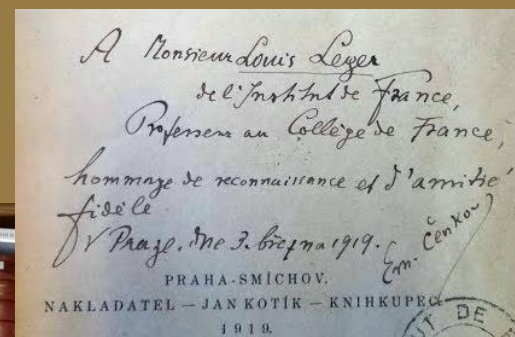 A Monsieur Louis Leger
de l'Institut de France,
Professeur au Collège de France,
hommage de reconnaissance et d'amitié
fidèle
V Praze, dne 3. března 1919.
Em. Čenkov
PRAHA-SMÍCHOV.
NAKLADATEL — JAN KOTÍK — KNIHKUPEC
1919.
UT DE